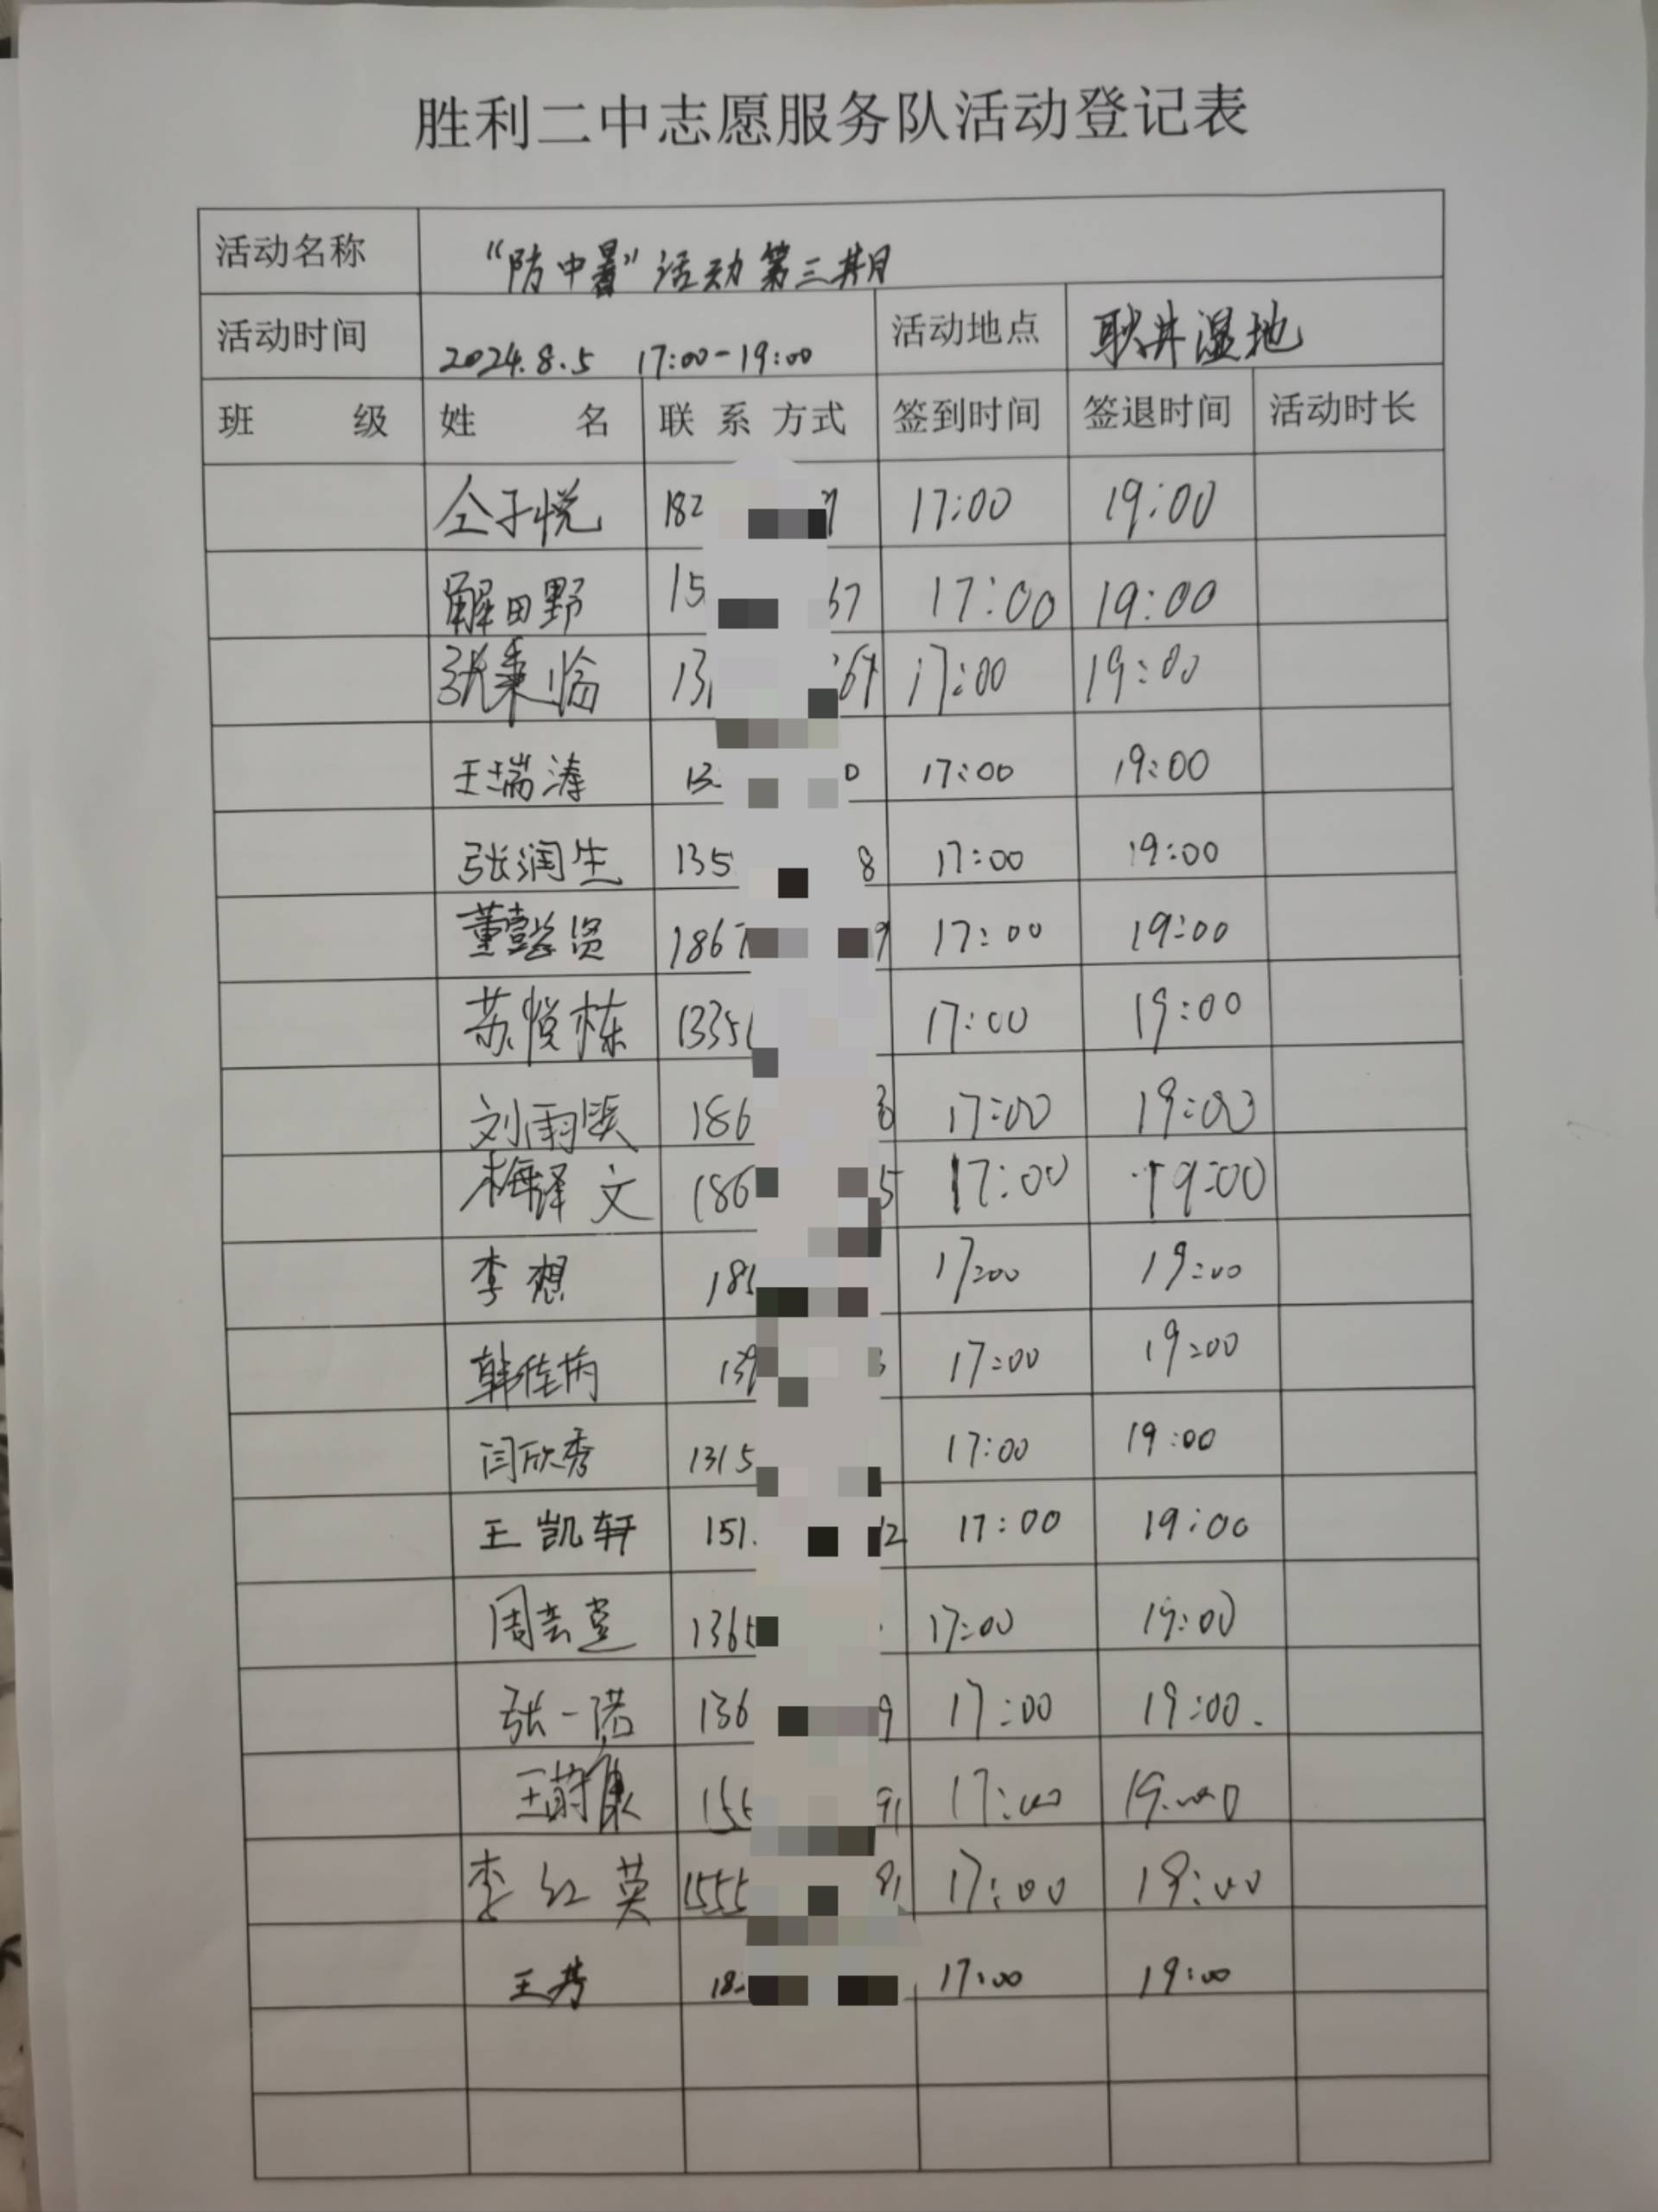 胜利二中志愿服务队活动登记表
活动名称 “防中暑”活动第三期
活动时间 2024.8.5 17:00-19:00 活动地点 耿井湿地
班级 姓名 联系方式 签到时间 签退时间 活动时长
仝子悦 182 17:00 19:00
解田野 15 37 17:00 19:00
张秉临 13 17:00 19:00
王瑞涛 13 0 17:00 19:00
张润生 135 8 17:00 19:00
董懿 1867 9 17:00 19:00
苏悦栋 1335 17:00 19:00
刘雨 186 17:00 19:00
梅铎文 186 5 17:00 19:00
李想 18 17:00 19:00
韩佳芮 13 17:00 19:00
闫欣秀 1315 17:00 19:00
王凯轩 151 12 17:00 19:00
周芸萱 136 17:00 19:00
张一诺 136 9 17:00 19:00.
王蔚康 155 91 17:00 19:00
李红英 1555 91 17:00 19:00
王芳 18 17:00 19:00